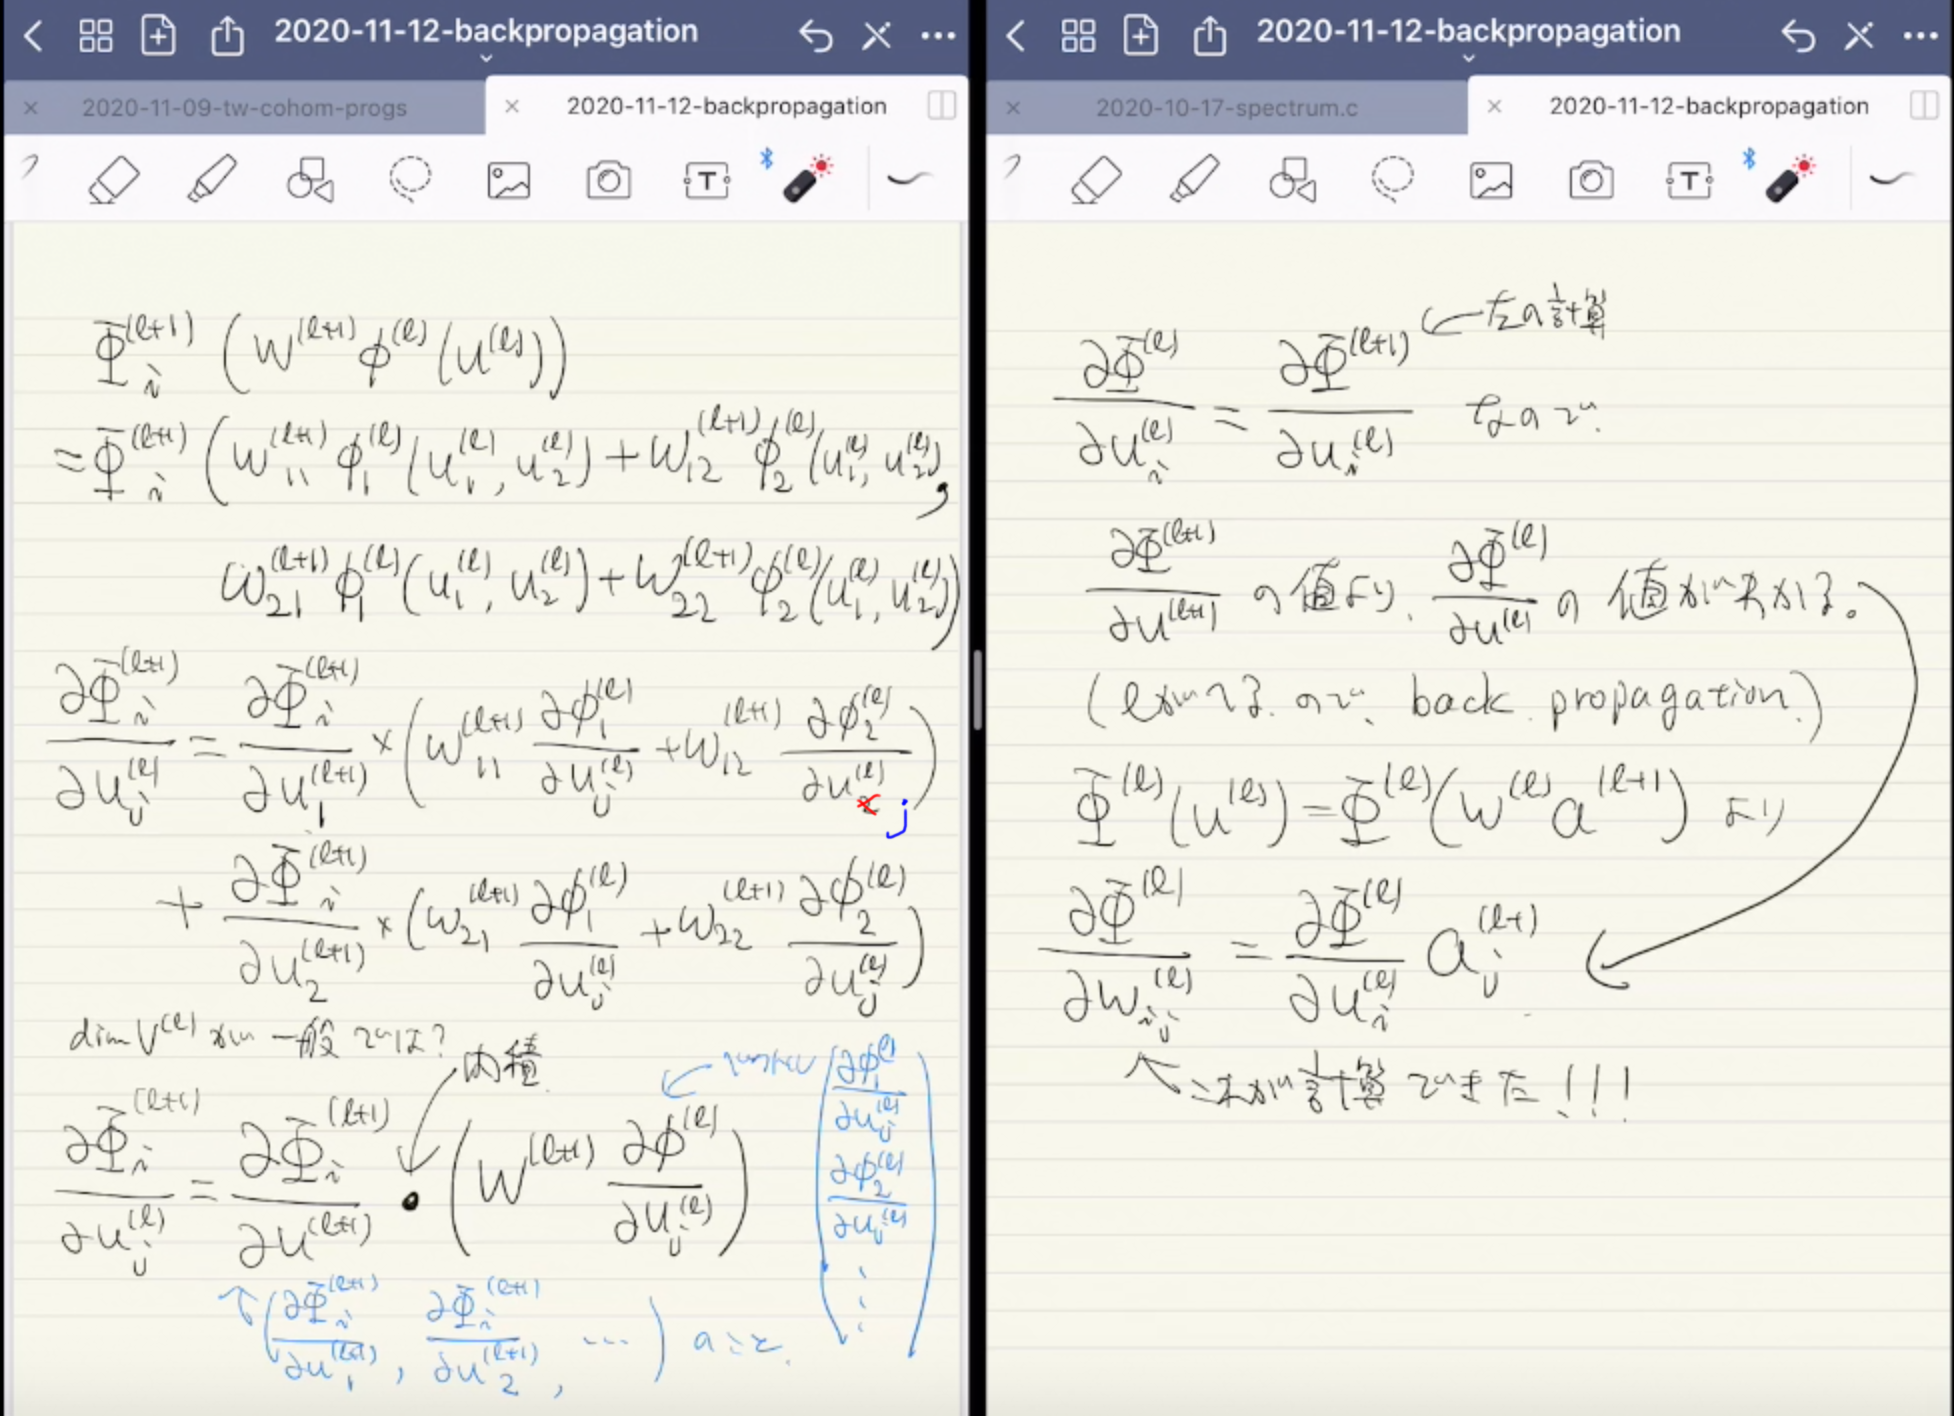 2020-11-12-backpropagation
2020-11-09-tw-cohom-progs
2020-11-12-backpropagation
T
Φ_i^(l+1) (W^(l+1) φ^(l) (u^(l)))
= Φ_i^(l+1) (w_11^(l+1) φ_1^(l) (u_1^(l), u_2^(l)) + w_12^(l+1) φ_2^(l) (u_1^(l), u_2^(l)),
w_21^(l+1) φ_1^(l) (u_1^(l), u_2^(l)) + w_22^(l+1) φ_2^(l) (u_1^(l), u_2^(l)))
∂Φ_i^(l+1)/∂u_j^(l) = ∂Φ_i^(l+1)/∂u_1^(l+1) × (w_11^(l+1) ∂φ_1^(l)/∂u_j^(l) + w_12^(l+1) ∂φ_2^(l)/∂u_2^(l)) j
+ ∂Φ_i^(l+1)/∂u_2^(l+1) × (w_21^(l+1) ∂φ_1^(l)/∂u_j^(l) + w_22^(l+1) ∂φ_2^(l)/∂u_j^(l))
dim V^(l) が一般では?
内積
∂Φ_i^(l+1)/∂u_j^(l) = ∂Φ_i^(l+1)/∂u^(l+1) • (W^(l+1) ∂φ^(l)/∂u_j^(l))
(∂φ_1^(l)/∂u_j^(l)
∂φ_2^(l)/∂u_j^(l)
⋮)
↑(∂Φ_i^(l+1)/∂u_1^(l+1), ∂Φ_i^(l+1)/∂u_2^(l+1), …) のこと.
2020-11-12-backpropagation
2020-10-17-spectrum.c
2020-11-12-backpropagation
T
←左の計算
∂Φ^(l)/∂u_i^(l) = ∂Φ^(l+1)/∂u_i^(l) なので.
∂Φ^(l+1)/∂u^(l+1) の値より, ∂Φ^(l)/∂u^(l) の値が求かる。
(lがへる.ので. back propagation.)
Φ^(l)(u^(l)) = Φ^(l)(W^(l) a^(l+1)) より
∂Φ^(l)/∂w_ij^(l) = ∂Φ^(l)/∂u_i^(l) a_j^(l+)
↖これが計算できた!!!